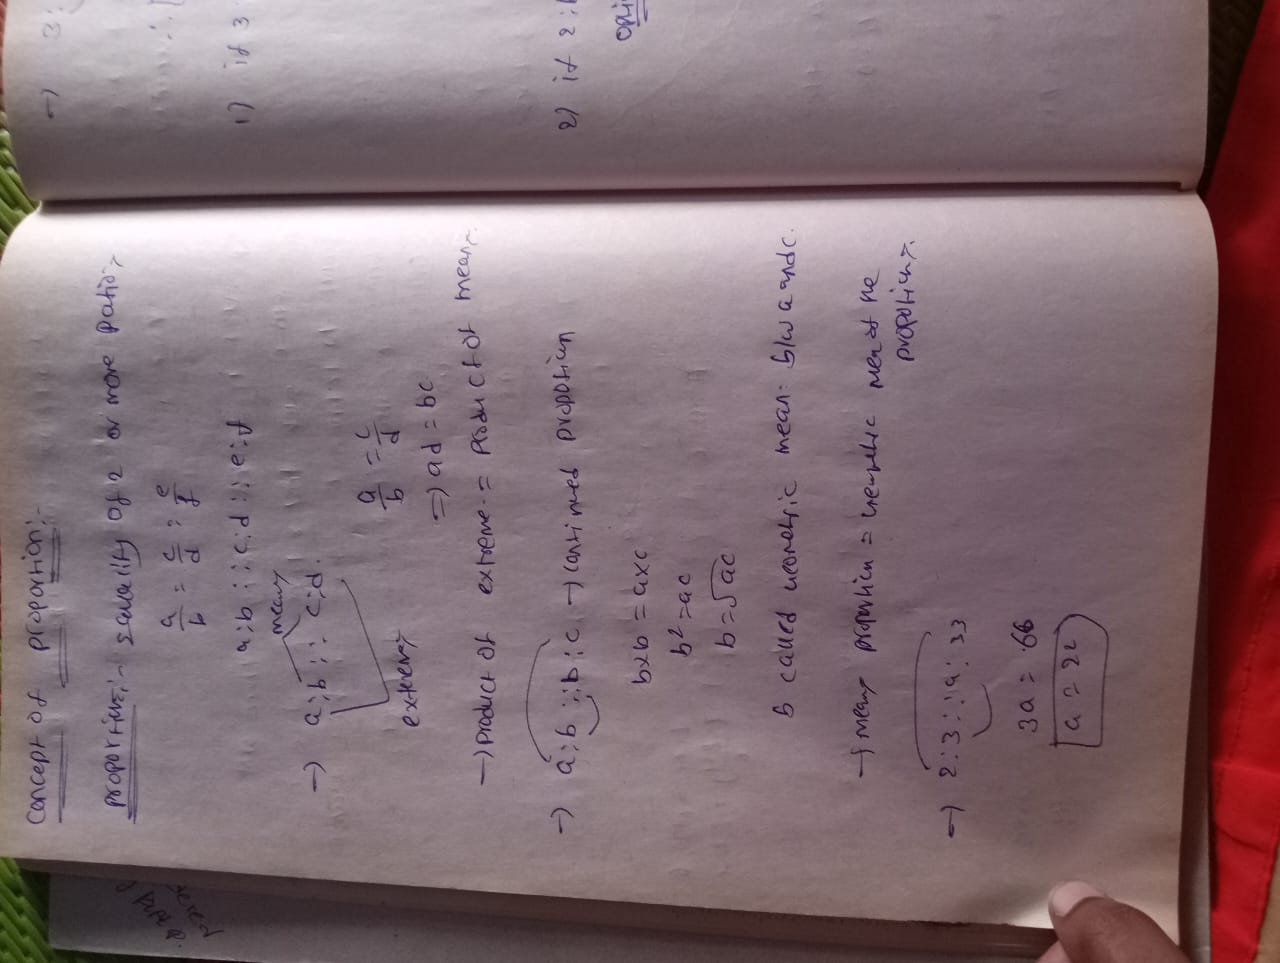 concept of proportion:-
proportion:- equality of 2 or more ratios
a/b = c/d : e/f
a:b::c:d::e:f
means
→ a:b::c:d.
extremes
a/b = c/d
⇒ ad = bc
→ product of extremes = product of means.
→ a:b::b:c → continued proportion
b×b = a×c
b² = ac
b = √ac
b called geometric mean: b/w a and c.
→ mean proportion = geometric mean of the
proportions.
→ 2:3::a:33
3a = 66
a = 22
→ 3:
1) if 3
2) if 2: